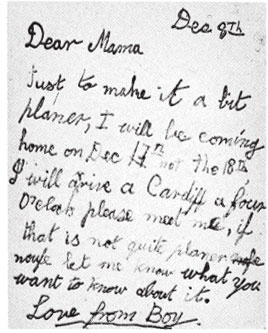 Dec 9th
Dear Mama
Just to make it a bit
planer, I will be coming
home on Dec 17th not the 18th
I will arive a Cardiff a four
O'clock please meet me, if
that is not quite planer
noufe let me know what you
want to know about it.
Love from Boy.